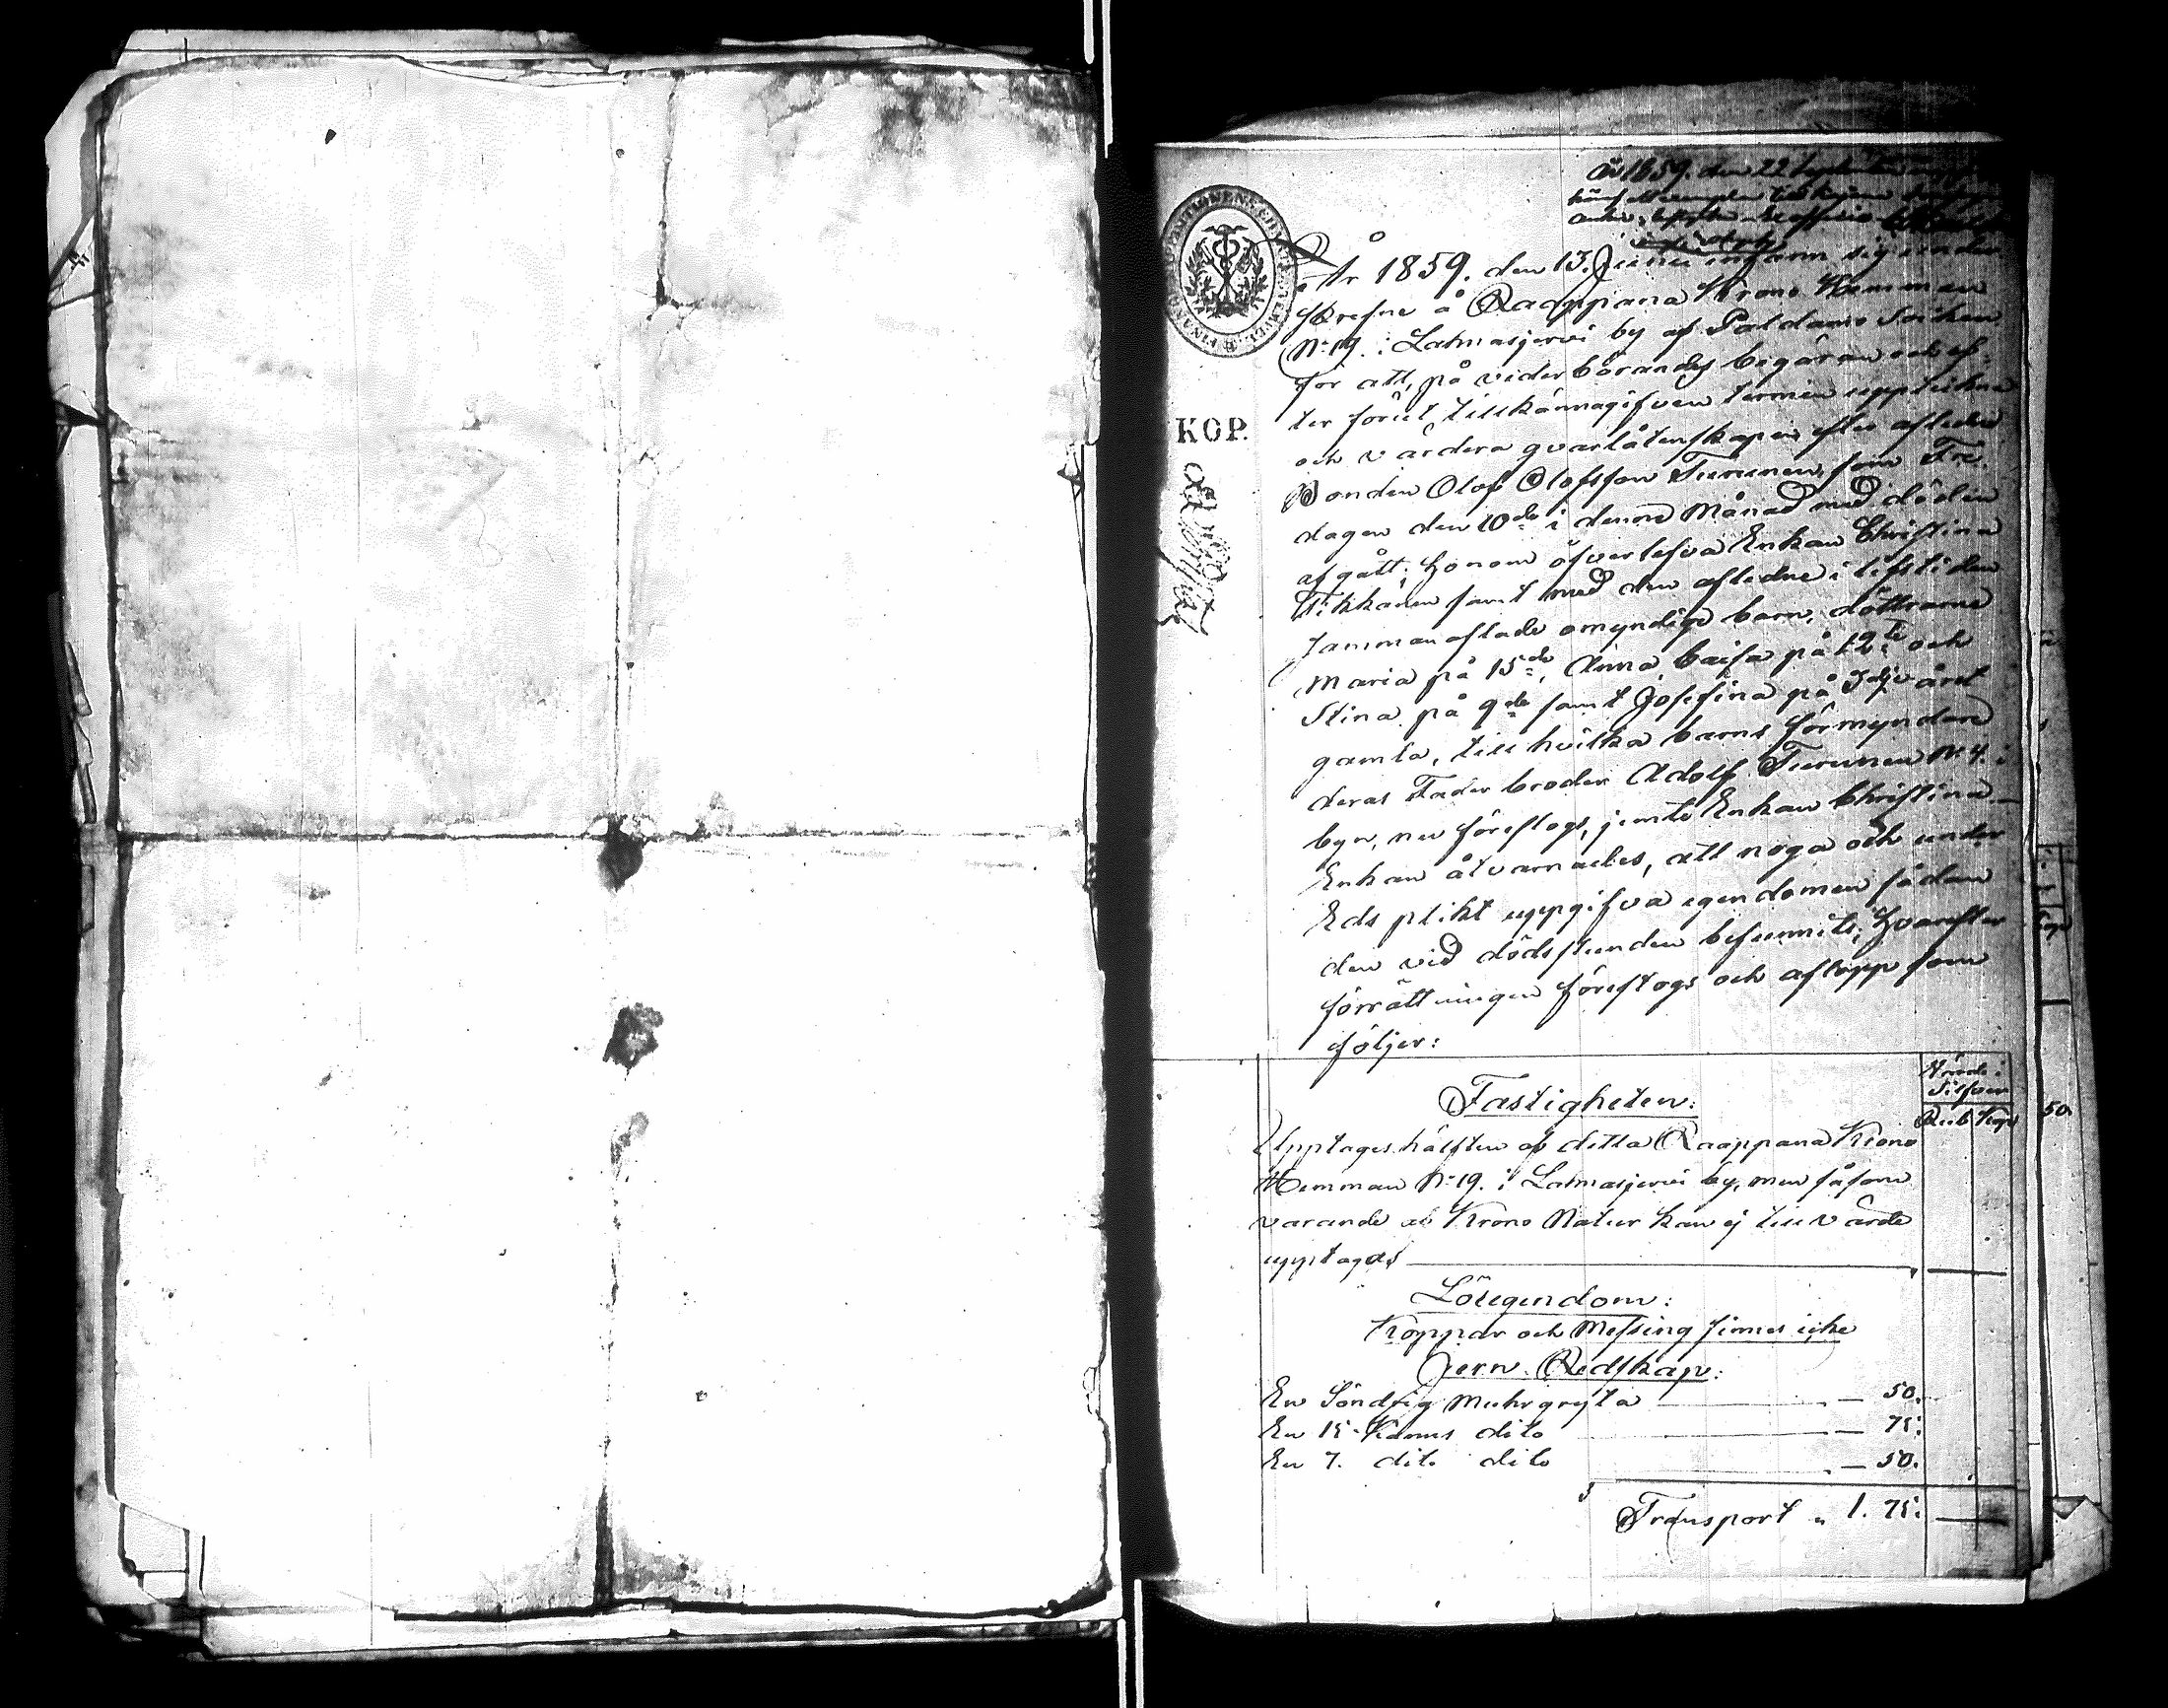 År 1859. den 22 September
År 1859. den 13. Junii infann sig under
skrefne å Raappana Krono Hemman
N:o 19. i Lamasjerwi by af Paldamo Socken
för att, på vederbörandes begäran och ef-
ter förut tillkännagifven termin uppteckna
och värdera qvarlåtenskapen efter aflidne
Bonden Olof Olofsson Turunen, som Fre-
dagen den 10de i denne Månad med döden
afgått; honom öfverlefva Enkan Christina
Tikkanen samt med den aflidne i lifstiden
sammanaflade omyndige barn, döttrarne
Maria på 15de, Anna Caisa på 12te och
Stina på 9de samt Josefina på 3dje året
gamla, till hvilka barns förmyndare
deras Faderbroder Adolf Turunen N:o 4. i
byn, nu föreslogs, jemte Enkan Christina
Enkan åtvarnades, att noga och under
Eds plikt uppgifva egendomen sådan
den vid dödsstunden befunnits; hvarefter
förrättningen företogs och aflopp som
följer:
KOP.
Värde i
Silfver
Rub. Kop.
Fastigheten:
Upptages hälften af detta Raappana Krono
Hemman N:o 19. i Lamasjerwi by, men såsom
varande af Krono Natur kan ej till värde
upptagas
Lösegendom:
Koppar och Messing finnes icke
Jern Redskap:
En Söndrig Muhrgryta — 50.
En 15 Kanns dito — 75.
En 7. dito dito — 50.
Transport " 1. 75.
50.